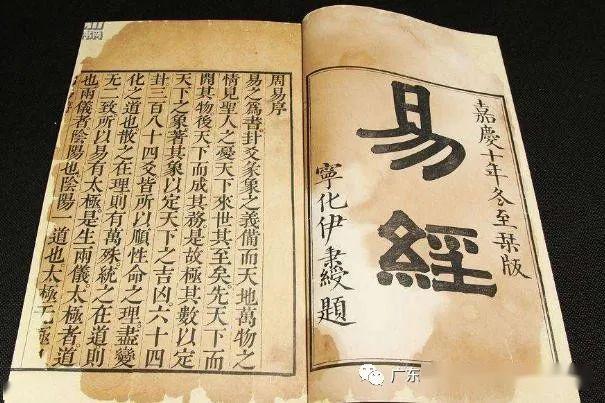 嘉慶十年冬至栞版
易經
寧化伊秉綬題
周易序
易之爲書卦爻彖象之義備而天地萬物之
情見聖人之憂天下來世其至矣先天下而
開其物後天下而成其務是故極其數以定
天下之象著其象以定天下之吉凶六十四
卦三百八十四爻皆所以順性命之理盡變
化之道也散之在理則有萬殊統之在道則
无二致所以易有太極是生兩儀太極者道
也兩儀者陰陽也陰陽 道也太極无極
广东